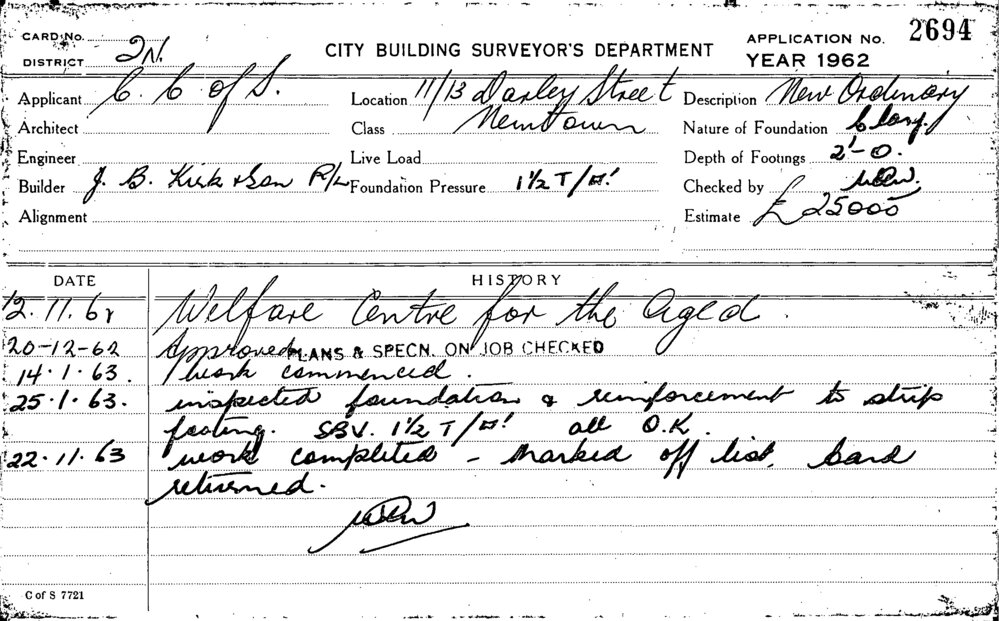 CARD No.
DISTRICT 2N.
CITY BUILDING SURVEYOR'S DEPARTMENT
APPLICATION No. 2694
YEAR 1962
Applicant C. C of S.
Location 11/13 Darley Street
Description New Ordinary
Architect
Class Newtown
Nature of Foundation Clay.
Engineer
Live Load
Depth of Footings 2'-0.
Builder J. B. Kirk & Son P/L
Foundation Pressure 1½ T/□'
Checked by
Alignment
Estimate £ 25000
DATE
HISTORY
12.11.62 Welfare Centre for the Aged.
20-12-62 Approved PLANS & SPECN. ON JOB CHECKED
14.1.63. work commenced.
25.1.63. inspected foundation & reinforcement to strip
footing. SBV. 1½ T/□' all O.K.
22.11.63 work completed - marked off list. Card
returned.
C of S 7721